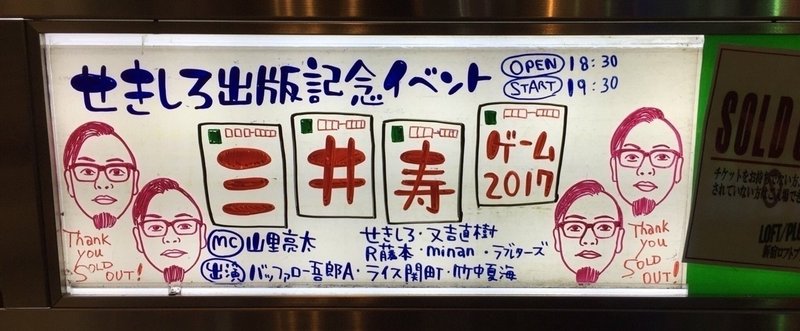 せきしろ出版記念イベント
OPEN 18:30
START 19:30
三 井 寿 ゲーム
2017
MC 山里亮太
せきしろ・又吉直樹
R藤本・minan・ラブレターズ
出演 バッファロー吾郎A・ライス関町・竹中夏海
Thank
you
SOLD
OUT!
Thank
you
SOLD
OUT!
SOLD
チケットをお持ち
されていない方
LOFT/PLU
新宿ロフトプ